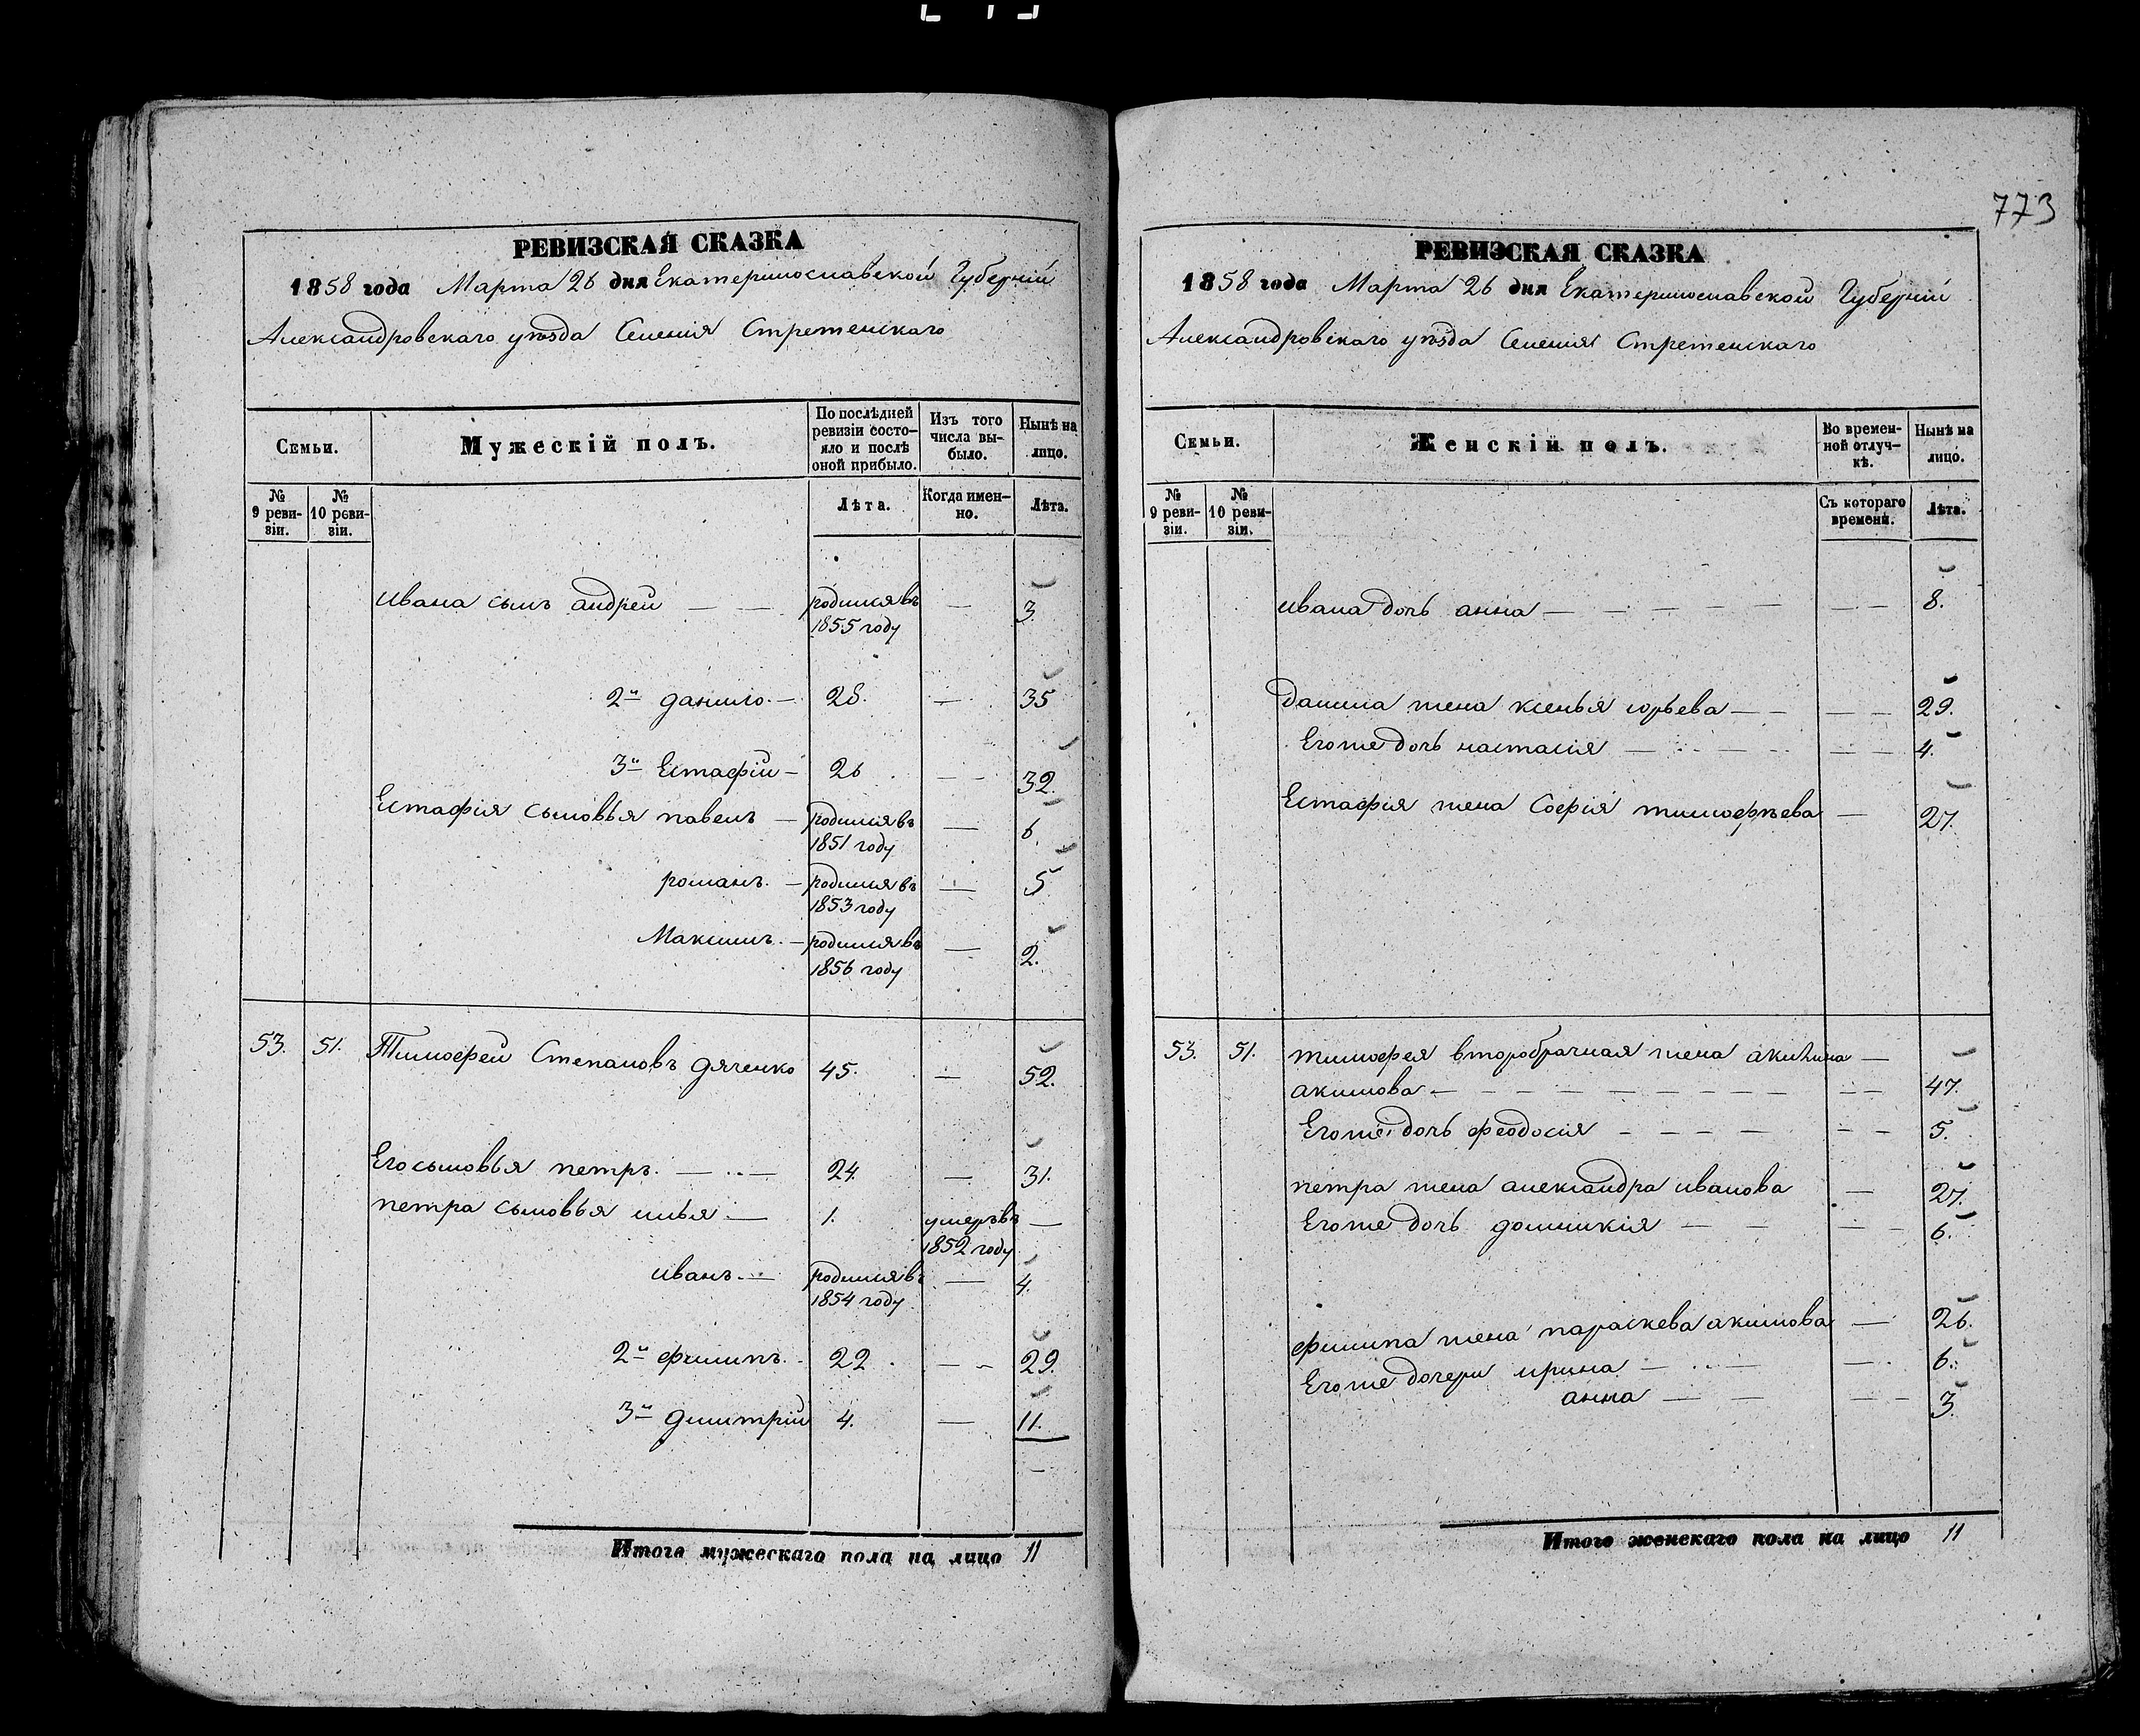 773
РЕВИЗСКАЯ СКАЗКА
1858 года Марта 26 дня Екатеринославской Губерніи
Александровскаго уѣзда Селенія Стретенскаго
Семьи.
Мужескій полъ.
По послѣдней ревизіи состояло и послѣ оной прибыло.
Изъ того числа выбыло.
Нынѣ на лицо.
№ 9 ревизіи.
№ 10 ревизіи.
Лѣта.
Когда именно.
Лѣта.
Ивана сынъ андрей — — родился въ 1855 году — 3.
2й данило — 28. — 35
3й Естафій — 26 — — 32.
Естафія сыновья павелъ — родился въ 1851 году — 6.
романъ. — родился въ 1853 году — 5
Максимъ. — родился въ 1856 году — 2.
53. 51. Тимофей Степановъ дяченко 45. — 52.
Его сыновья петръ. — — 24. — 31.
петра сыновья илья — 1. умеръ въ 1852 году —
иванъ. — родился въ 1854 году — 4.
2й филипъ. 22 — - 29.
3й дмитрій 4. — 11.
Итого мужескаго пола на лицо 11
РЕВИЗСКАЯ СКАЗКА
1858 года Марта 26 дня Екатеринославской Губерніи
Александровскаго уѣзда Селенія Стретенскаго
Семьи.
Женскій полъ.
Во временной отлучкѣ.
Нынѣ на лицо.
№ 9 ревизіи.
№ 10 ревизіи.
Съ котораго времени.
Лѣта.
ивана дочь анна — — — — — — — 8.
Данила жена ксенья юрьева — — — — 29.
Его же дочь настасія — — — — — 4.
Естафія жена Софія тимофѣева — 27.
53. 51. тимофея второбрачная жена акилина —
акимова — — — — — — — — — — 47.
Его же дочь феодосія — — — — — — 5.
петра жена александра иванова — 27.
Его же дочь домникія — — — — 6.
филипа жена параскева акимова — 26.
Его же дочери ирина — — — 6.
анна — — — — 3.
Итого женскаго пола на лицо 11